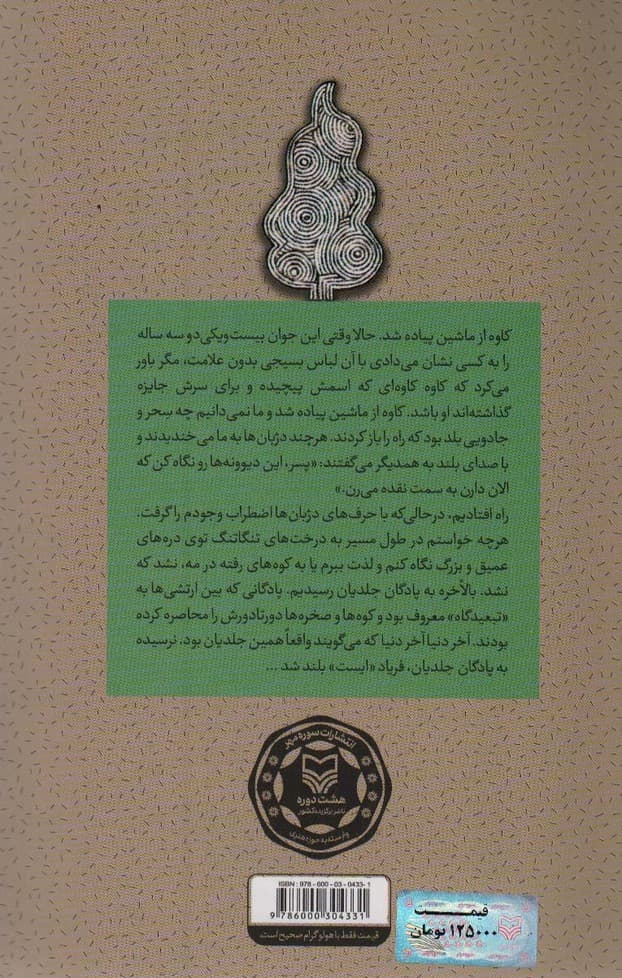 کاوه از ماشین پیاده شد. حالا وقتی این جوان بیست‌ویکی‌دو سه ساله
را به کسی نشان می‌دادی با آن لباس بسیجی بدون علامت، مگر باور
می‌کرد که کاوه کاوه‌ای که اسمش پیچیده و برای سرش جایزه
گذاشته‌اند او باشد. کاوه از ماشین پیاده شد و ما نمی‌دانیم چه سِحر و
جادویی بلد بود که راه را باز کردند. هرچند دژبان‌ها به ما می‌خندیدند و
با صدای بلند به همدیگر می‌گفتند: «پسر، این دیوونه‌ها رو نگاه کن که
الان دارن به سمت نقده می‌رن.»
راه افتادیم، درحالی‌که با حرف‌های دژبان‌ها اضطراب وجودم را گرفت.
هرچه خواستم در طول مسیر به درخت‌های تنگاتنگ توی دره‌های
عمیق و بزرگ نگاه کنم و لذت ببرم یا به کوه‌های رفته در مه، نشد که
نشد. بالأخره به پادگان جلدیان رسیدیم. پادگانی که بین ارتشی‌ها به
«تبعیدگاه» معروف بود و کوه‌ها و صخره‌ها دورتادورش را محاصره کرده
بودند. آخر دنیا آخر دنیا که می‌گویند واقعاً همین جلدیان بود. نرسیده
به پادگان جلدیان، فریاد «ایست» بلند شد ...
انتشارات سوره مهر
هشت دوره
ناشر برگزیده کشور
وابسته به حوزه هنری
ISBN: 978-600-03-0433-1
9 786000 304331
قیمت فقط با هولوگرام صحیح است.
قیمت
۱۲۵۰۰۰ تومان